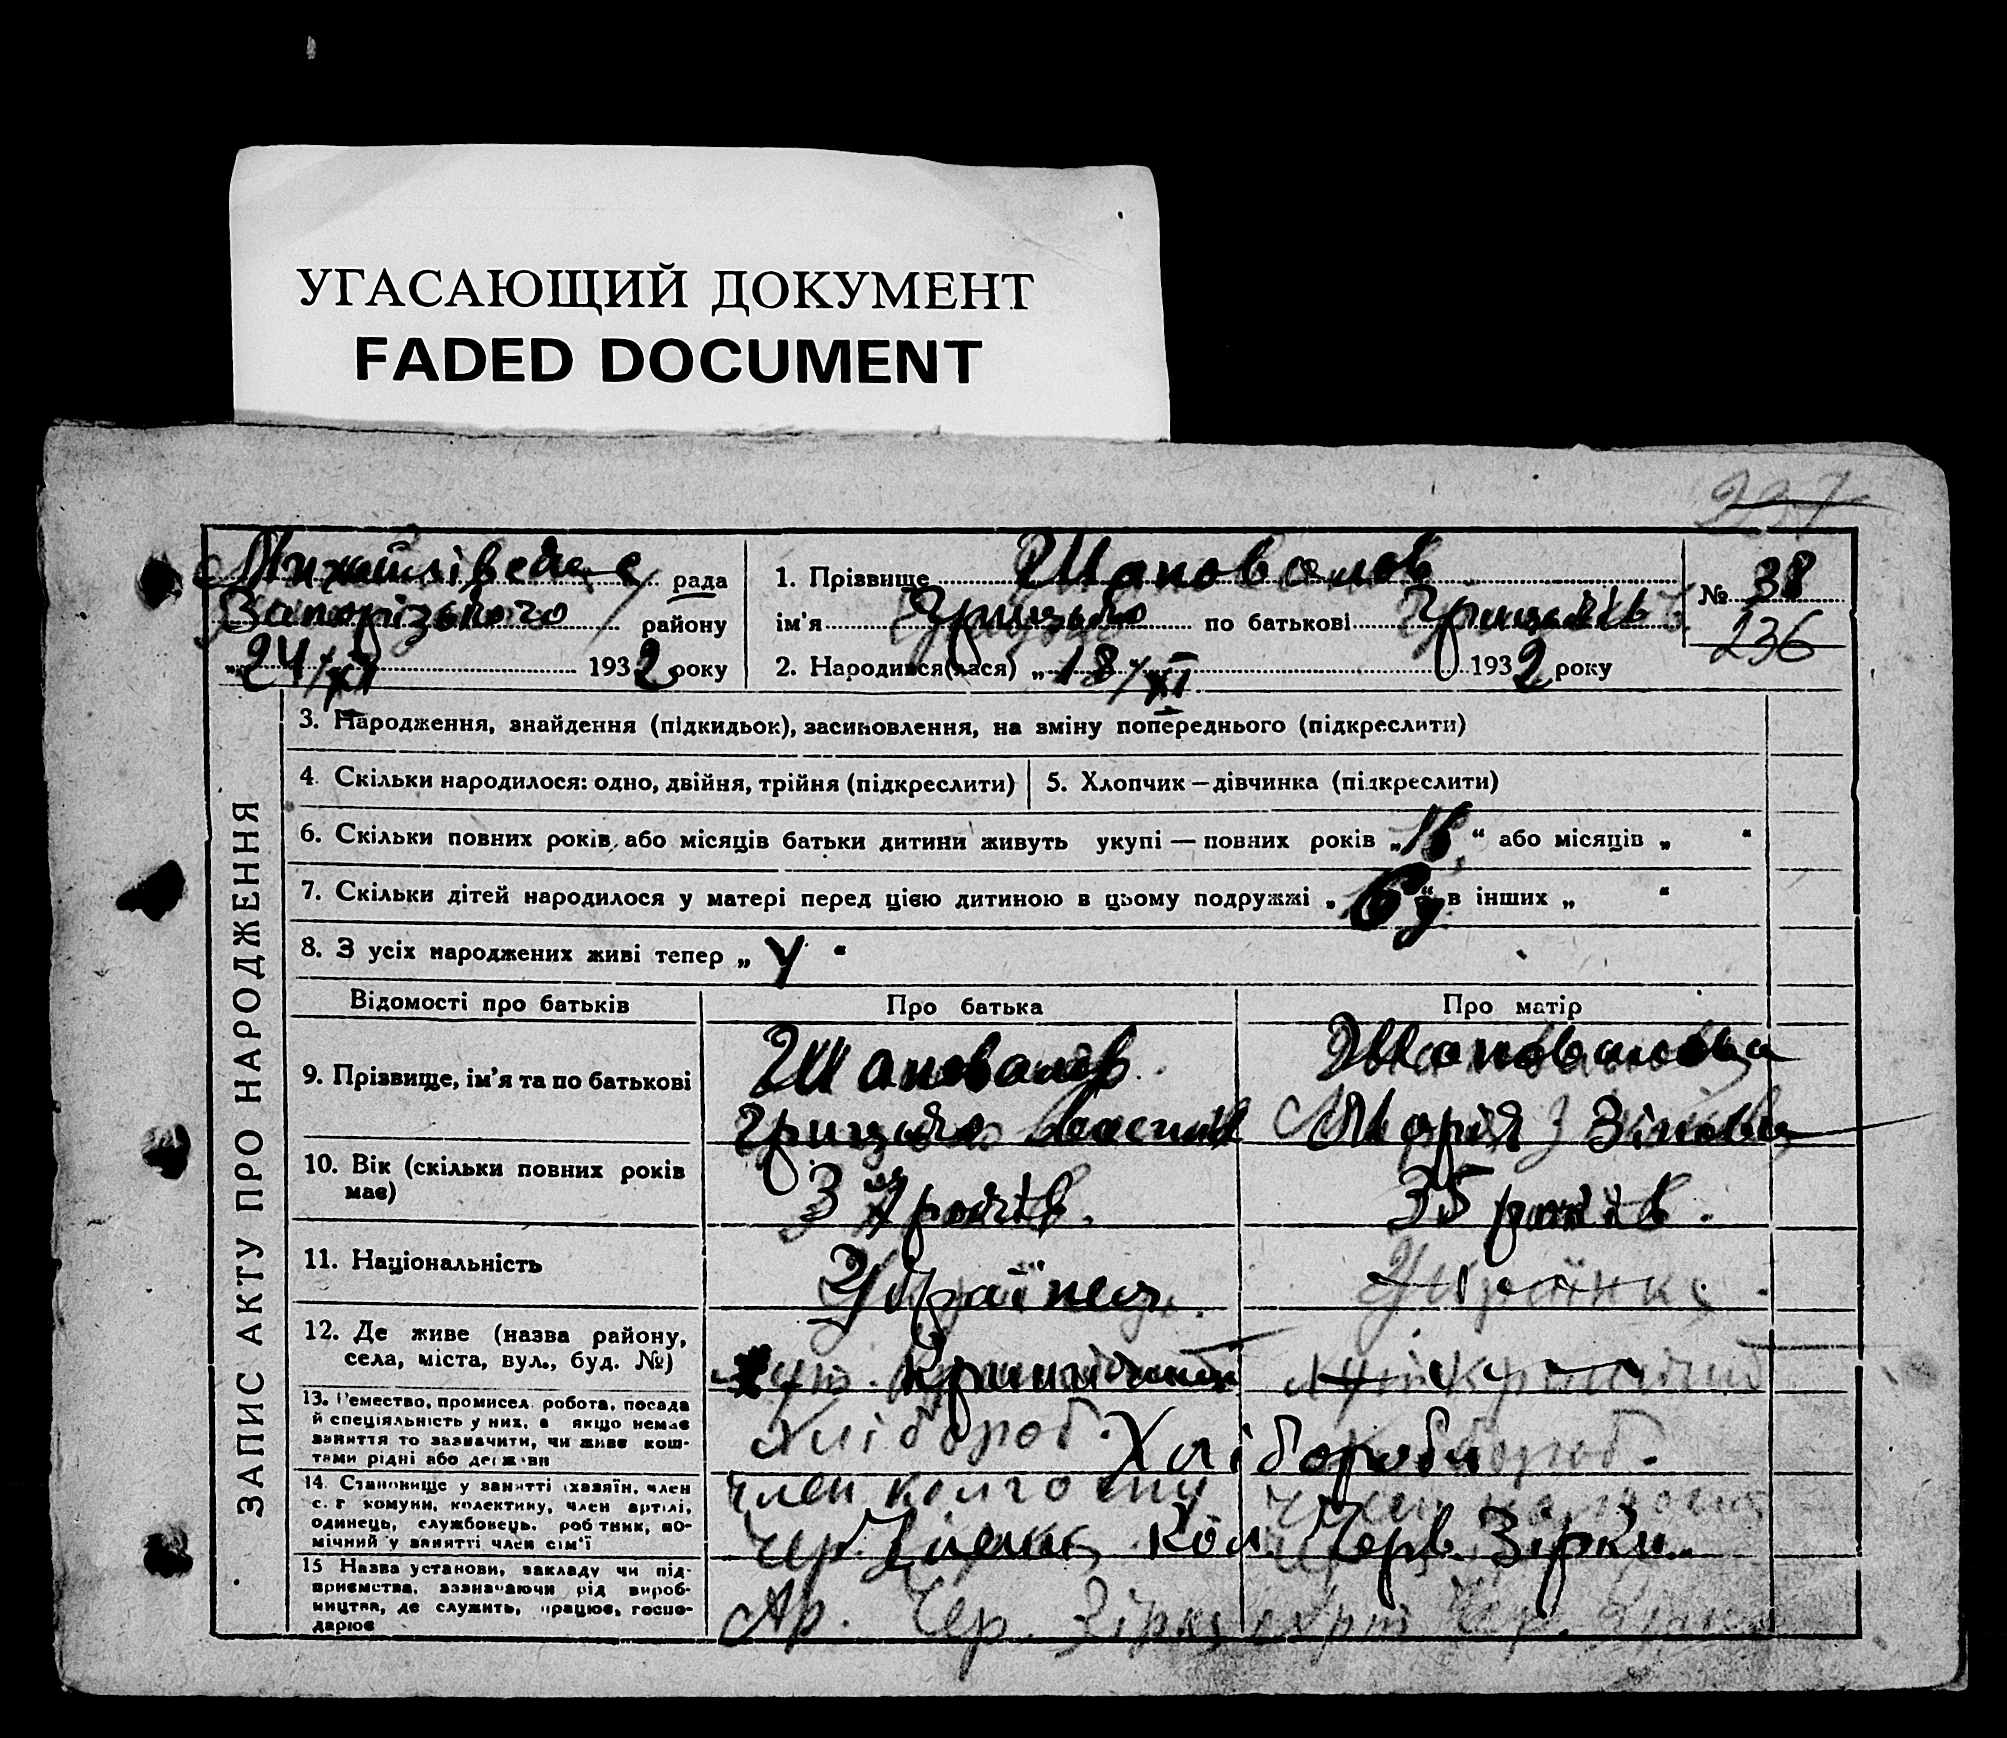 УГАСАЮЩИЙ ДОКУМЕНТ
FADED DOCUMENT
237
рада
Запорізького району
„24/XI 1932 року
1. Прізвище Шаповалов
ім'я Грицько по батькові
2. Народився(лася) „18/XI 1932 року
№ 38
236
ЗАПИС АКТУ ПРО НАРОДЖЕННЯ
3. Народження, знайдення (підкидьок), засиновлення, на зміну попереднього (підкреслити)
4. Скільки народилося: одно, двійня, трійня (підкреслити)
5. Хлопчик — дівчинка (підкреслити)
6. Скільки повних років, або місяців батьки дитини живуть укупі — повних років „ “ або місяців „ “
7. Скільки дітей народилося у матері перед цією дитиною в цьому подружжі „ “ в інших „ “
8. З усіх народжених живі тепер „ “
Відомості про батьків
Про батька
Про матір
9. Прізвище, ім'я та по батькові
Шаповалов
Грицько
Шаповалова
Марія
10. Вік (скільки повних років має)
37 років.
35 років.
11. Національність
Українец
Українка
12. Де живе (назва району, села, міста, вул., буд. №)
хут.
13. Ремество, промисел, робота, посада й спеціяльність у них, а якщо немає заняття то зазначити, чи живе коштами рідні або держави
Хлібороб.
Хлібороби
14. Становище у занятті (хазяїн, член с. г комуни, колективу, член артілі, одинець, службовець, робітник, помічний у занятті член сім'ї
член колгоспу
Члени Кол. Черв. Зірки.
15 Назва установи, закладу чи підприємства, зазначаючи рід виробництва, де служить, працює, господарює
Ар. Чер. Зірка